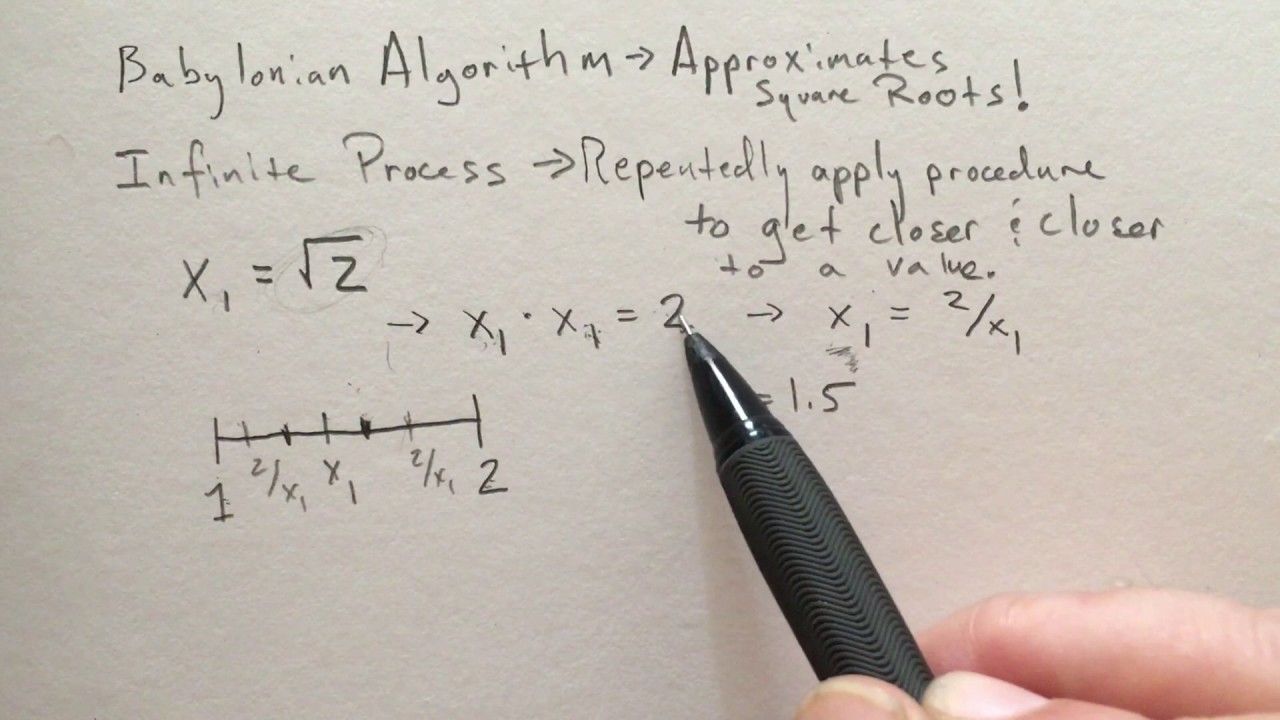 Babylonian Algorithm → Approximates
Square Roots!
Infinite Process → Repeatedly apply procedure
to get closer & closer
to a value.
x₁ = √2
→ x₁ · x₁ = 2 → x₁ = 2/x₁
= 1.5
2/x₁ x₁ 2/x₁
1 2